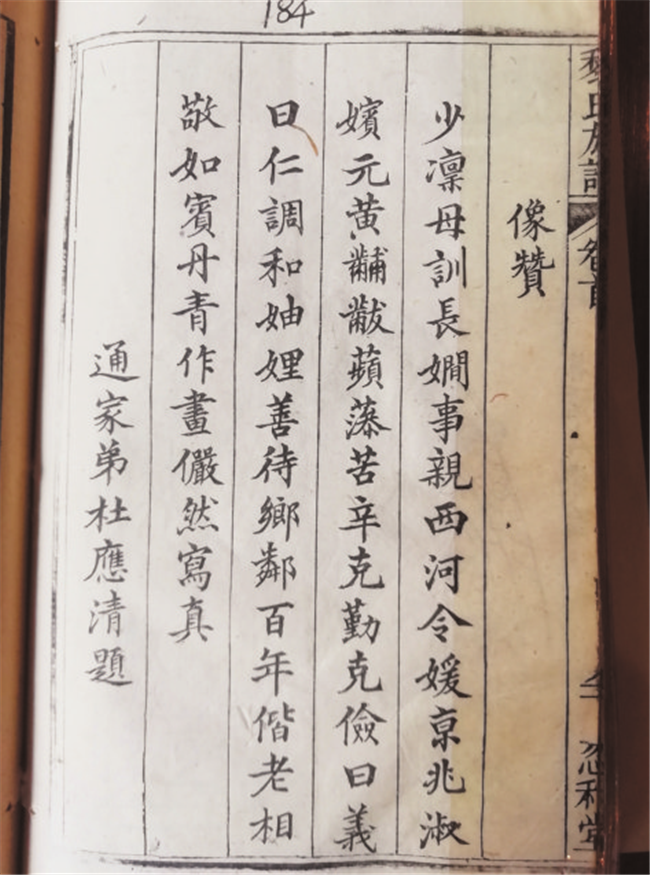 184
氏族譜 卷首 忍和堂
像贊
少凜母訓長嫺事親西河令媛亰兆淑
嬪元黃黼黻蘋藻苦辛克勤克儉曰義
曰仁調和妯娌善待鄉鄰百年偕老相
敬如賓丹青作畫儼然寫真
通家弟杜應清題